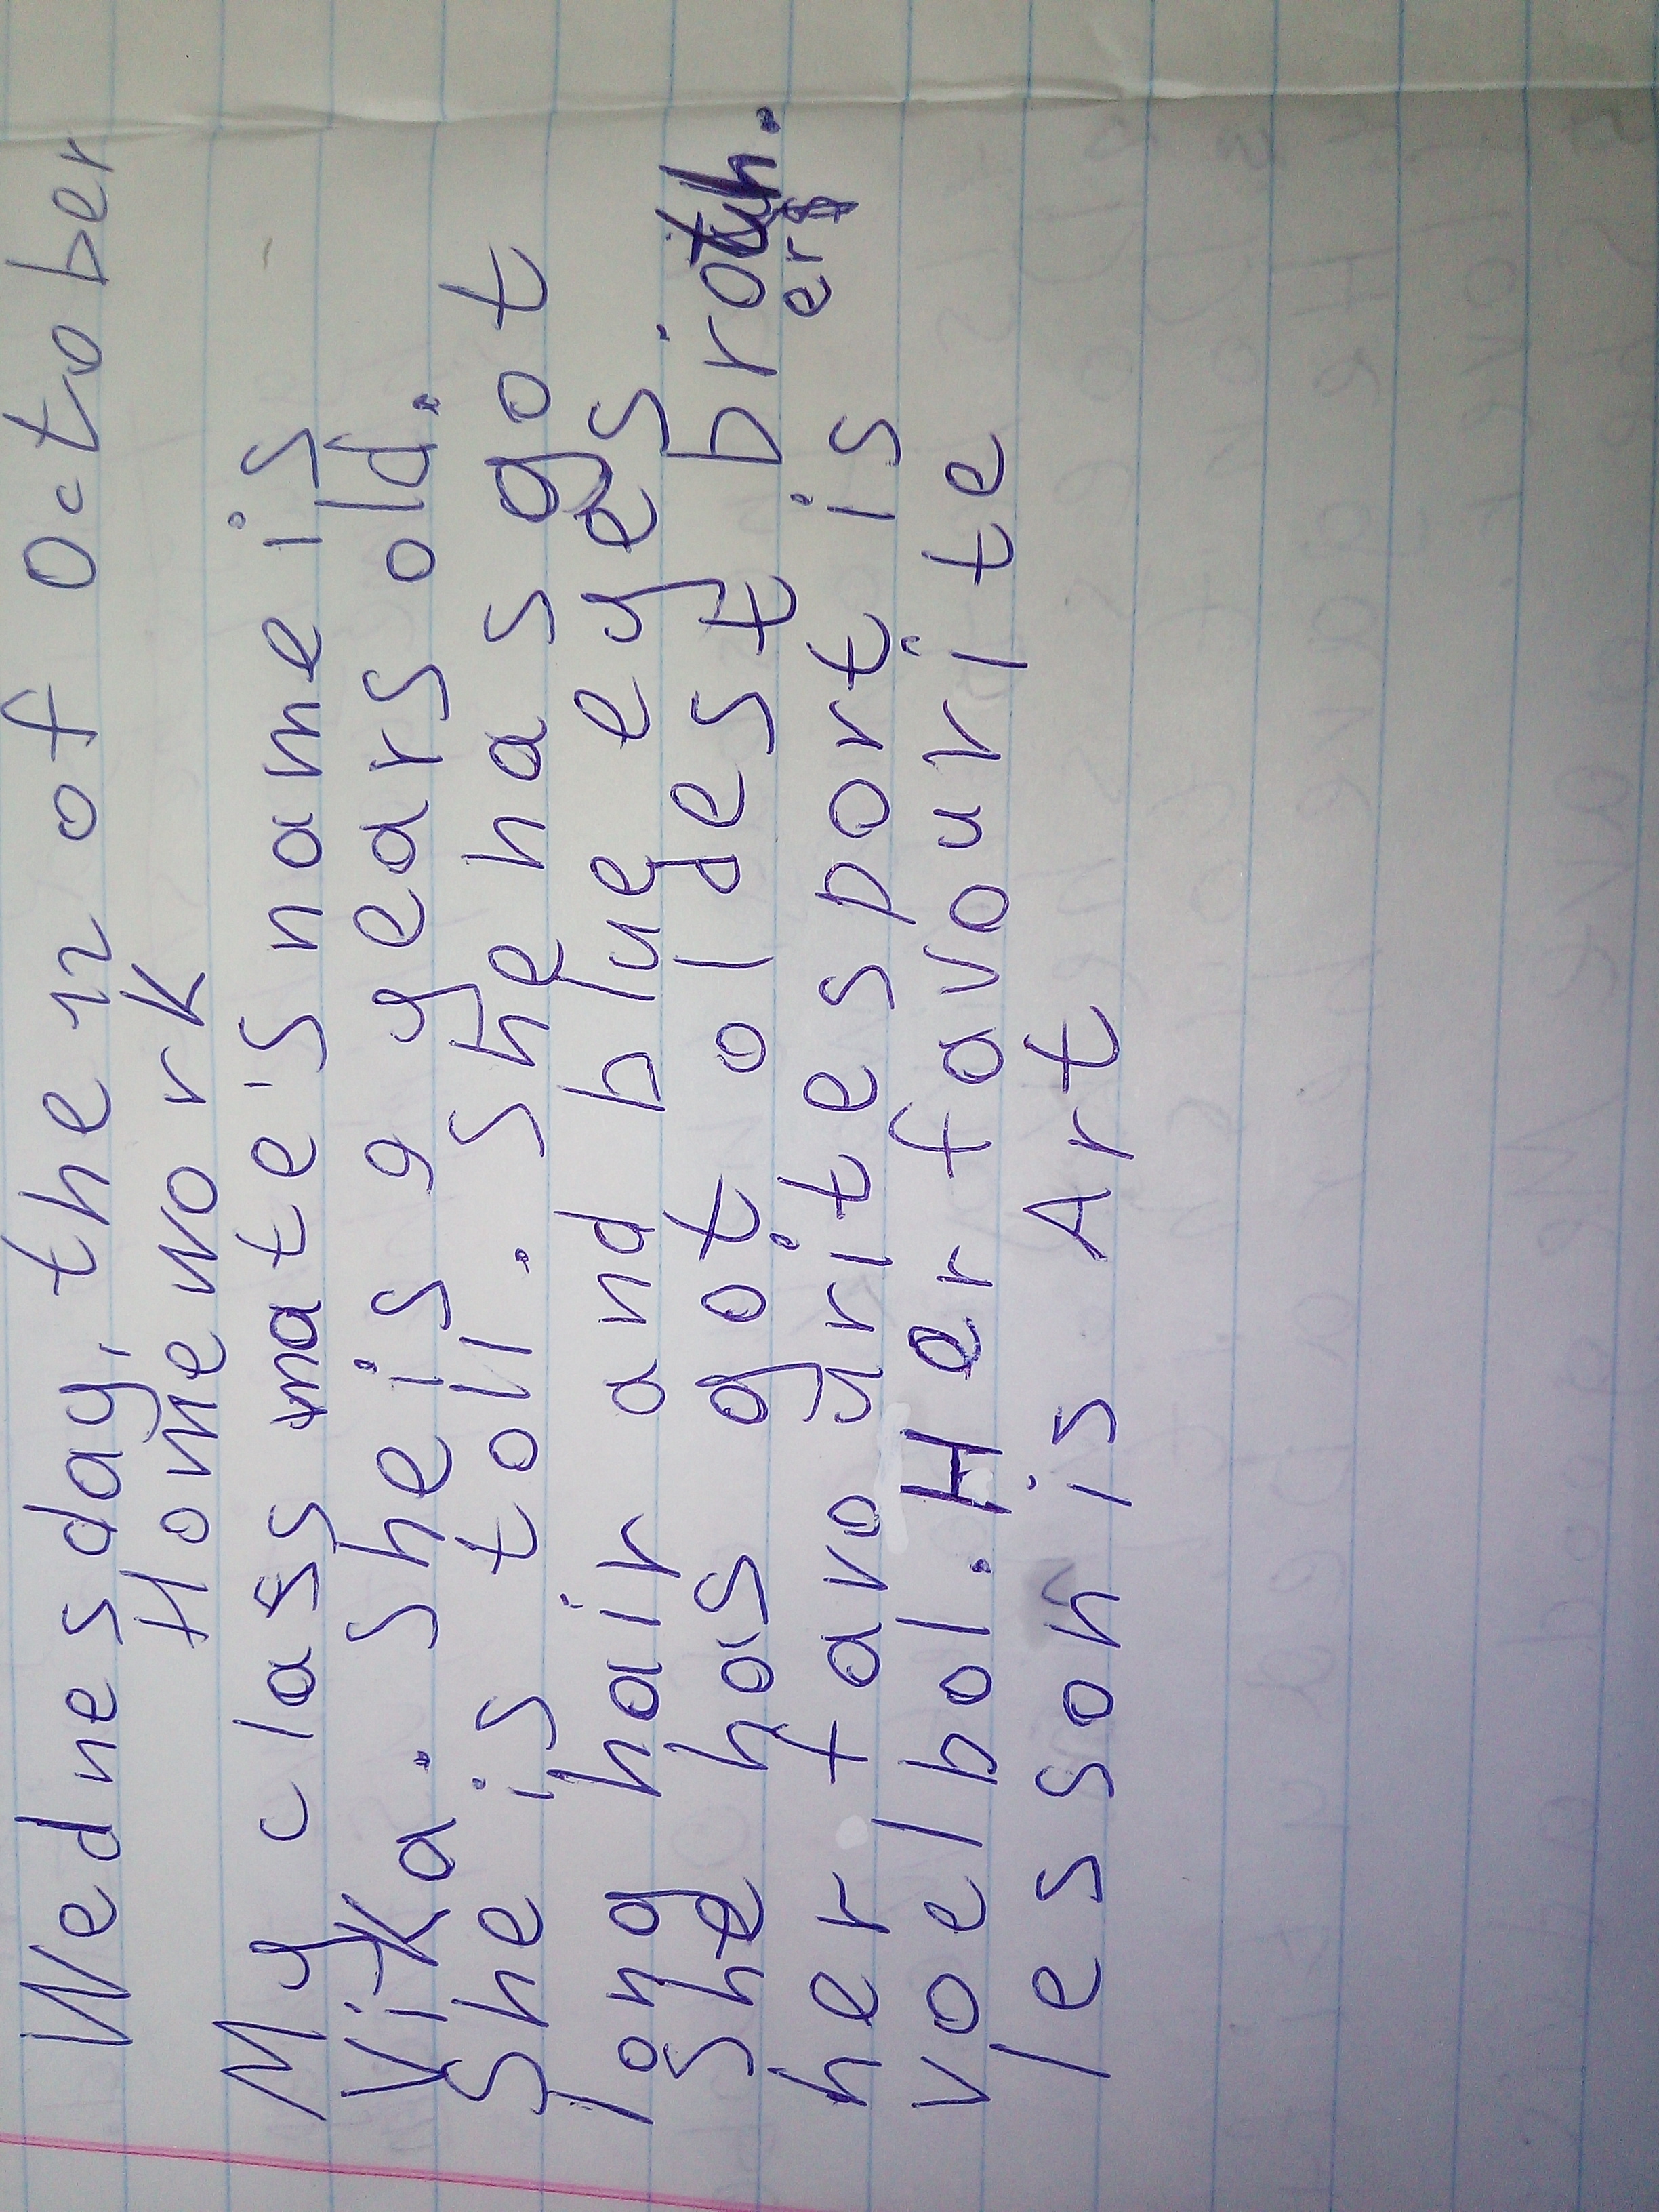 Wednesday, the 12 of October
Homework
My classmate's name is
Vika. She is 9 years old.
She is toll. She has got
long hair and blue eyes
She has got oldest broth.
ers
her favourite sport is
voelbol. Her favourite
lesson is Art